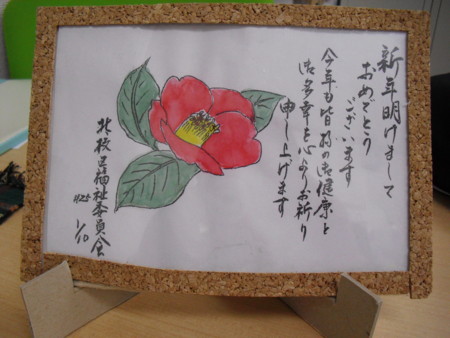 新年明けまして
おめでとう
ございます
今年も皆様の御健康と
御多幸を心よりお祈り
申し上げます
北校区福祉委員会
H25
1/10